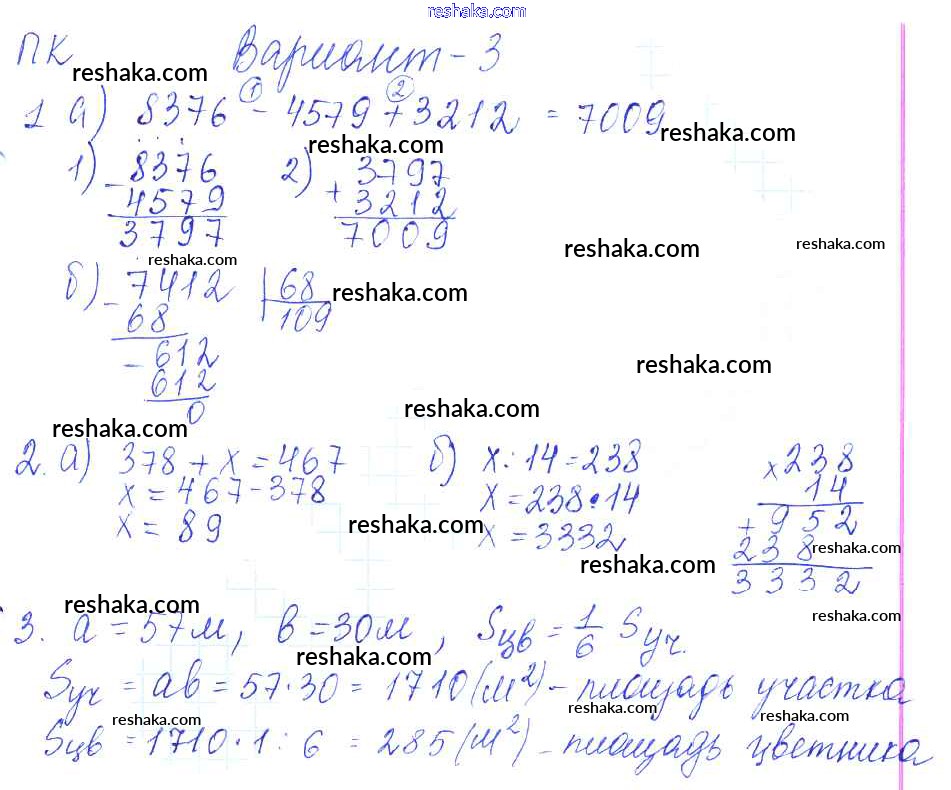 reshaka.com
ПК Вариант-3
reshaka.com
1 а) 8376 - 4579 + 3212 = 7009
① ②
reshaka.com
reshaka.com
1) - 8376 2) + 3797
4579 3212
3797 7009
reshaka.com
reshaka.com
reshaka.com
б) - 7412 | 68
reshaka.com
68 109
- 612
612
0
reshaka.com
reshaka.com
reshaka.com
2. а) 378 + x = 467 б) x : 14 = 238 × 238
x = 467 - 378 x = 238 · 14 14
x = 89 x = 3332 + 952
238
3332
reshaka.com
reshaka.com
reshaka.com
reshaka.com
reshaka.com
3. а = 57м, в = 30м, Sцв = 1/6 Sуч.
reshaka.com
Sуч = ав = 57·30 = 1710 (м²) - площадь участка
reshaka.com
reshaka.com
reshaka.com
Sцв = 1710·1:6 = 285 (м²) - площадь цветника